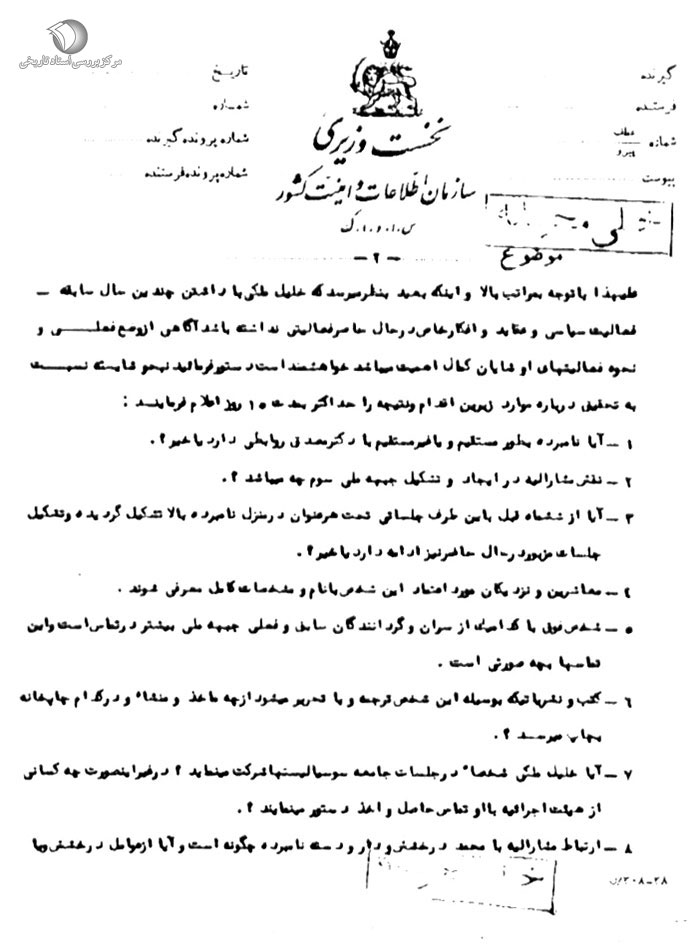 مرکز بررسی اسناد تاریخی
گیرنده
فرستنده
شماره عطف پیرو
پیوست
تاریخ
شماره
شماره پرونده گیرنده
شماره پرونده فرستنده
نخست وزیری
سازمان اطلاعات و امنیت کشور
س.ا.و.ا.ک
خیلی محرمانه
موضوع
-۲-
علیهذا با توجه بمراتب بالا و اینکه بعید بنظر میرسد که خلیل ملکی با داشتن چندین سال سابقه
فعالیت سیاسی و عقاید و افکار خاص در حال حاضر فعالیتی نداشته باشد آگاهی از وضع فعلی و
نحوه فعالیتهای او شایان کمال اهمیت میباشد خواهشمند است دستور فرمائید بنحو شایسته نسبت
به تحقیق درباره موارد زیرین اقدام و نتیجه را حداکثر بمدت ۱۰ روز اعلام فرمایند :
۱ - آیا نامبرده بطور مستقیم و یا غیر مستقیم با دکتر مصدق روابطی دارد یا خیر ؟.
۲ - نقش مشارالیه در ایجاد و تشکیل جبهه ملی سوم چه میباشد ؟.
۳ - آیا از ششماه قبل باین طرف جلساتی تحت هر عنوان در منزل نامبرده بالا تشکیل گردیده و تشکیل
جلسات مزبور در حال حاضر نیز ادامه دارد یا خیر ؟.
٤ - معاشرین و نزدیکان مورد اعتماد این شخص با نام و مشخصات کامل معرفی شوند .
۵ - شخص فوق با کدامیک از سران و گردانندگان سابق و فعلی جبهه ملی بیشتر در تماس است و این
تماسها بچه صورتی است .
۶ - کتب و نشریاتیکه بوسیله این شخص ترجمه و یا تحریر میشود از چه ماخذ و منشاء و در کدام چاپخانه
بچاپ میرسد ؟.
۷ - آیا خلیل ملکی شخصاً در جلسات جامعه سوسیالیستها شرکت مینماید ؟ در غیر اینصورت چه کسانی
از هیئت اجرائیه با او تماس حاصل و اخذ دستور مینمایند ؟.
۸ - ارتباط مشارالیه با محمد درخشش و دار و دسته نامبرده چگونه است و آیا از عوامل درخشش و یا